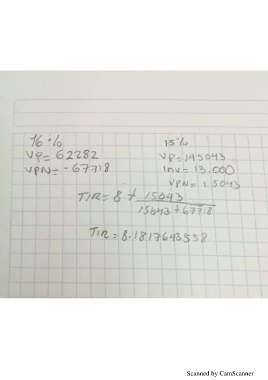 16%
VP= 62282
VPN= -67718
15%
VP= 145043
Inv= 13.000
VPN= 15043
TIR= 8 + 15043
15043 + 67718
TIR= 8.1817643558
Scanned by CamScanner